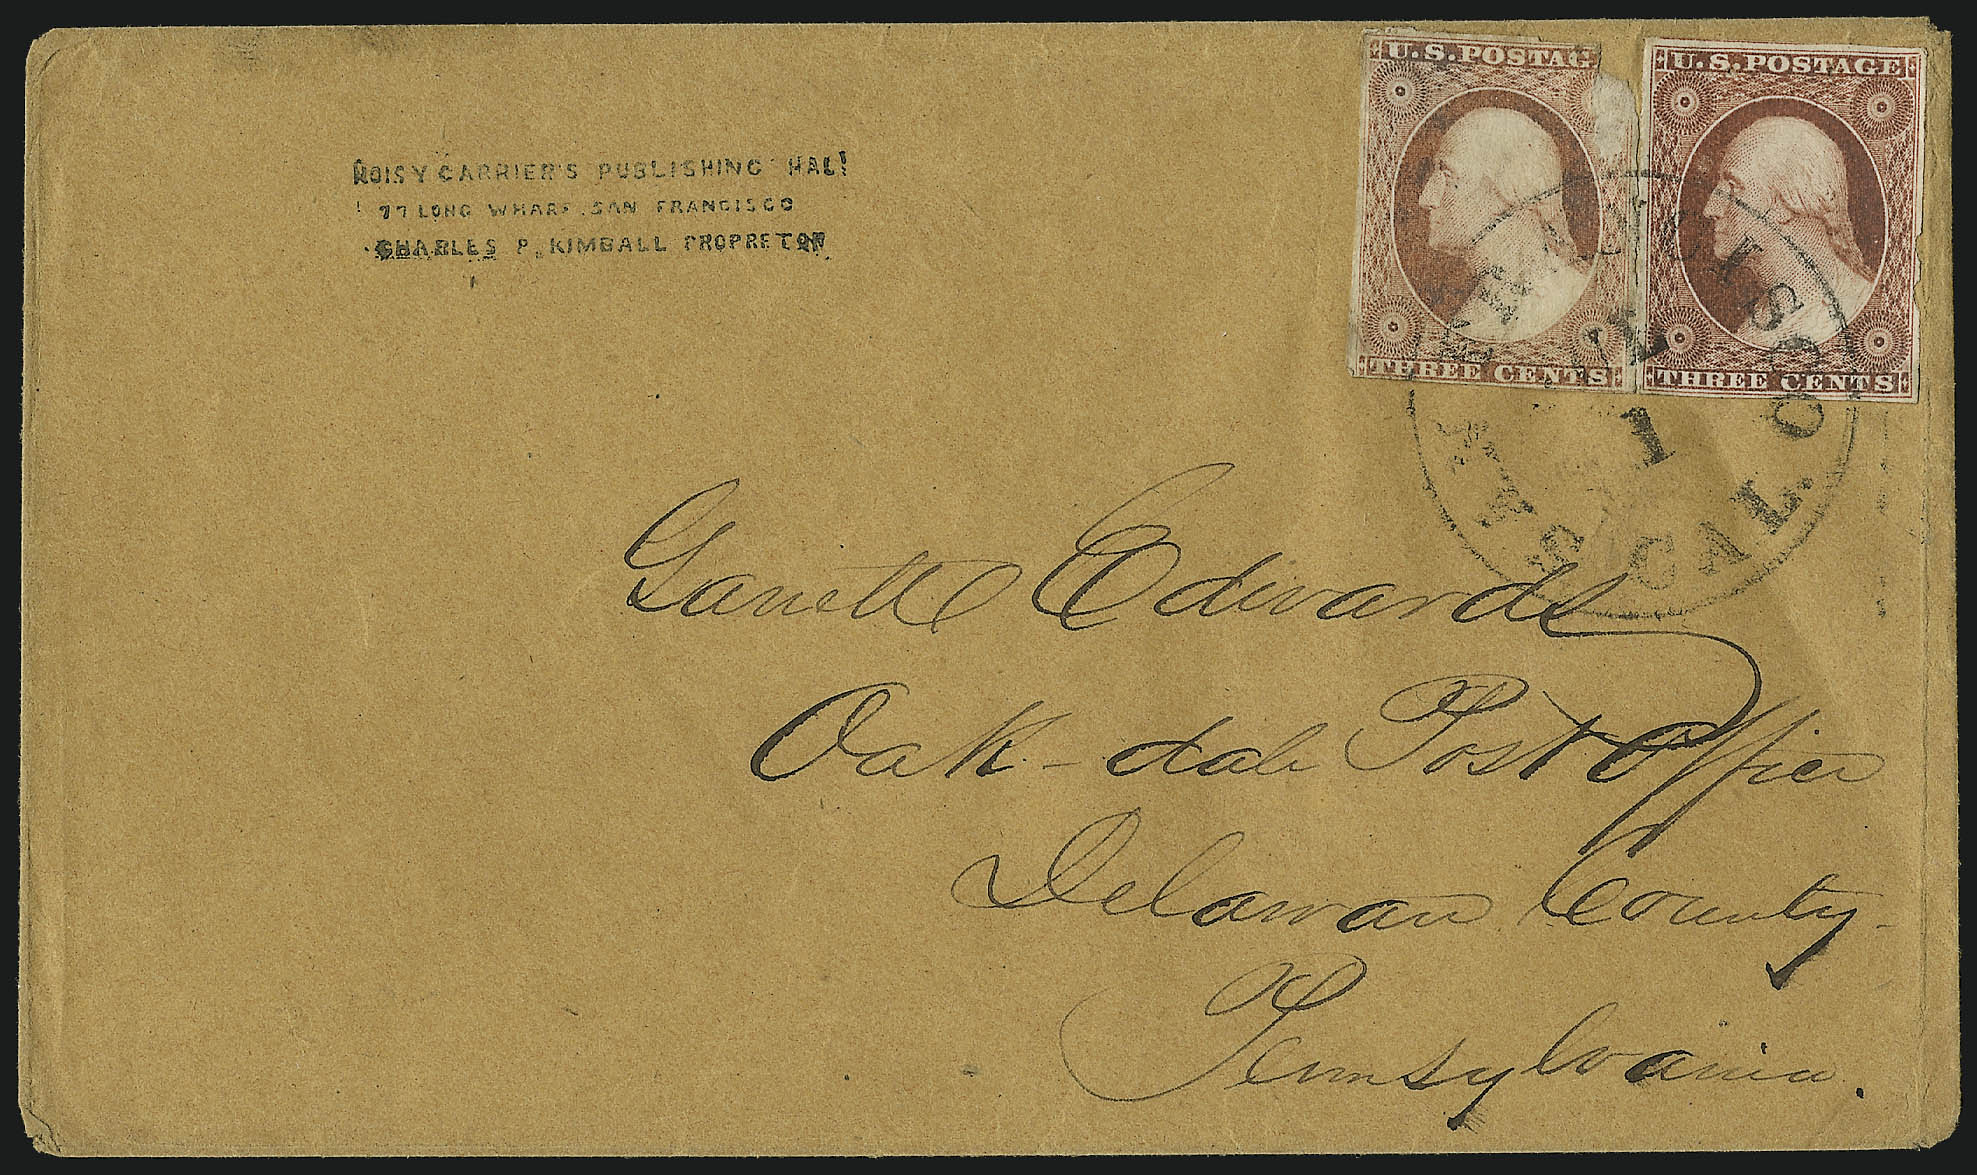 NOISY CARRIER'S PUBLISHING HALL
77 LONG WHARF, SAN FRANCISCO
CHARLES P. KIMBALL PROPRETOR
U.S. POSTAG
U.S. POSTAGE
THREE CENTS
THREE CENTS
FRANCISCO
1
CAL.
Garrett Edwards
Oak-dale Post Office
Delaware County
Pennsylvania.